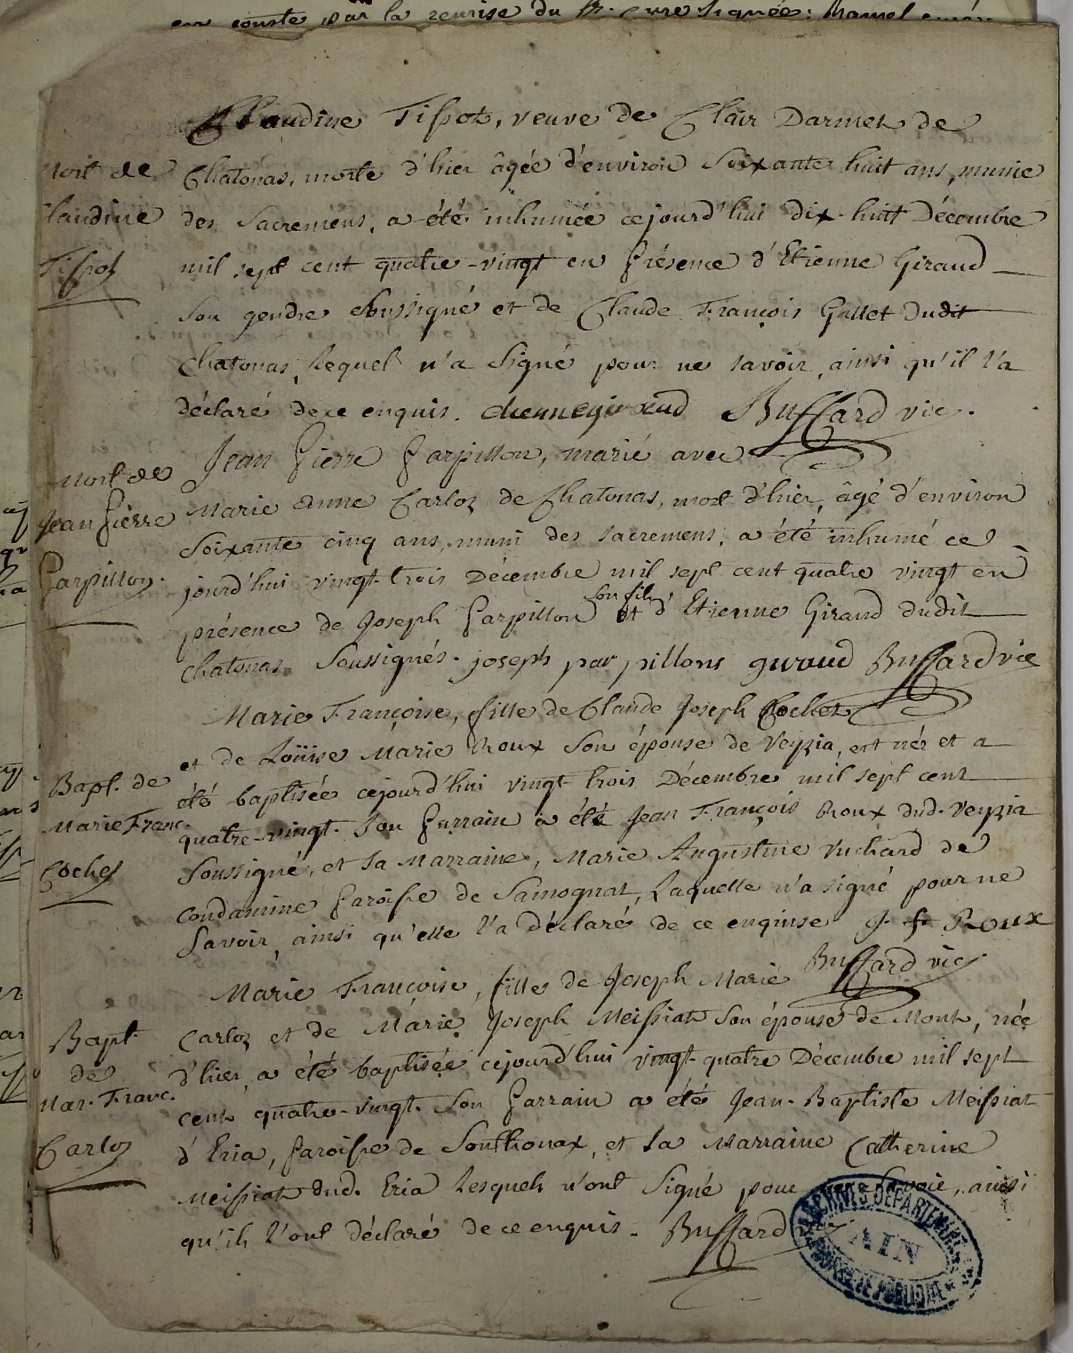 en conste par la remise du Sr. cure signée: Mamel curé
Claudine Tissot, veuve de Clair Darmet de
Mort de
Claudine
Tissot
Chatonas, morte d'hier âgée d'environ Soixante huit ans, munie
des Sacremens, a été inhumée cejourd'hui dix-huit Décembre
mil sept cent quatre-vingt en présence d'Etienne Giraud
Son gendre Soussigné et de Claude François Gallet dudit
Chatonas, Lequel n'a Signé pour ne savoir, ainsi qu'il l'a
déclaré de ce enquis. etienne giraud Buffard vic.
Mort de
Jean Pierre
Parpillon.
Jean Pierre Parpillon, marié avec
Marie Anne Carloz de Chatonas, mort d'hier, âgé d'environ
Soixante cinq ans, muni des sacremens, a été inhumé ce
jourd'hui vingt-trois Décembre mil sept cent quatre vingt en
présence de Joseph Parpillon son fils et d'Etienne Giraud dudit
Chatonas Soussignés. joseph parpillons guraud Buffard vic
Bapt. de
Marie Franc.
Cochet
Marie Françoise, fille de Claude Joseph Cochet
et de Loüise Marie Roux Son épouse de Veyzia, est née et a
été baptisée cejourd'hui vingt trois Décembre mil sept cent
quatre-vingt. Son Parrain a été Jean François Roux dud. Veyzia
Soussigné, et sa Marraine, Marie Augustine Vuchard de
Condamine Paroisse de Samognat, Laquelle n'a signé pour ne
Savoir, ainsi qu'elle l'a déclaré de ce enquise J. f. Roux
Buffard vic.
Bapt.
de
Mar. Franc.
Carloz
Marie Françoise, fille de Joseph Marie
Carloz et de Marie Joseph Meissiat Son épouse de Mons, née
d'hier, a été baptisée cejourd'hui vingt-quatre Décembre mil sept
cent quatre-vingt. Son Parrain a été Jean-Baptiste Meissiat
d'Eria, Paroisse de Sonthonax, et sa Marraine Catherine
Meissiat dud. Eria Lesquels n'ont Signé pour ne Savoir, ainsi
qu'ils l'ont déclaré de ce enquis. Buffard vic
ARCHIVES DEPARTEMENTALES
AIN